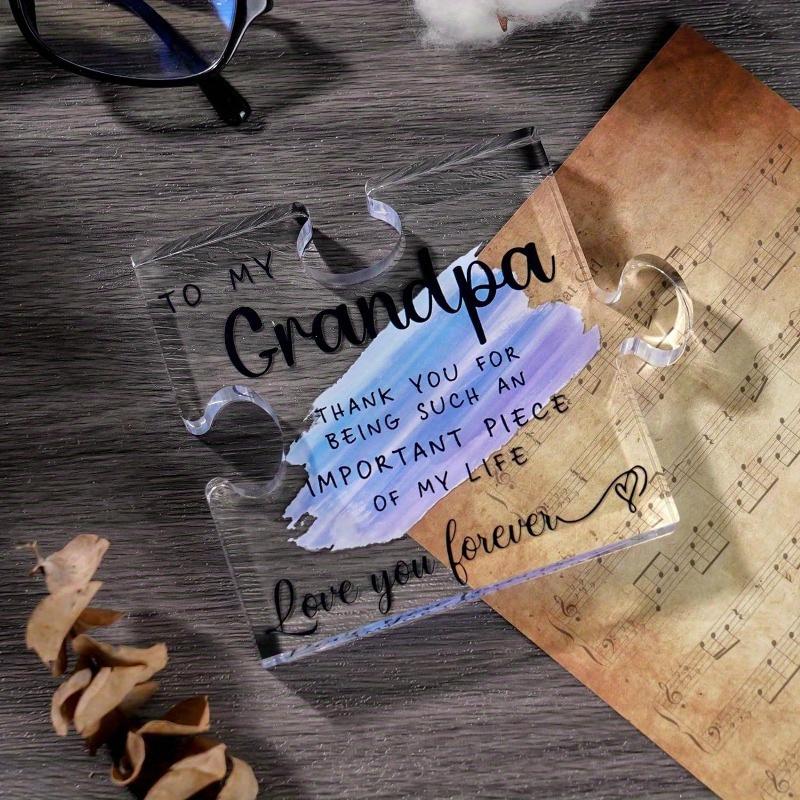 TO MY
Grandpa
THANK YOU FOR
BEING SUCH AN
IMPORTANT PIECE
OF MY LIFE
Love you forever